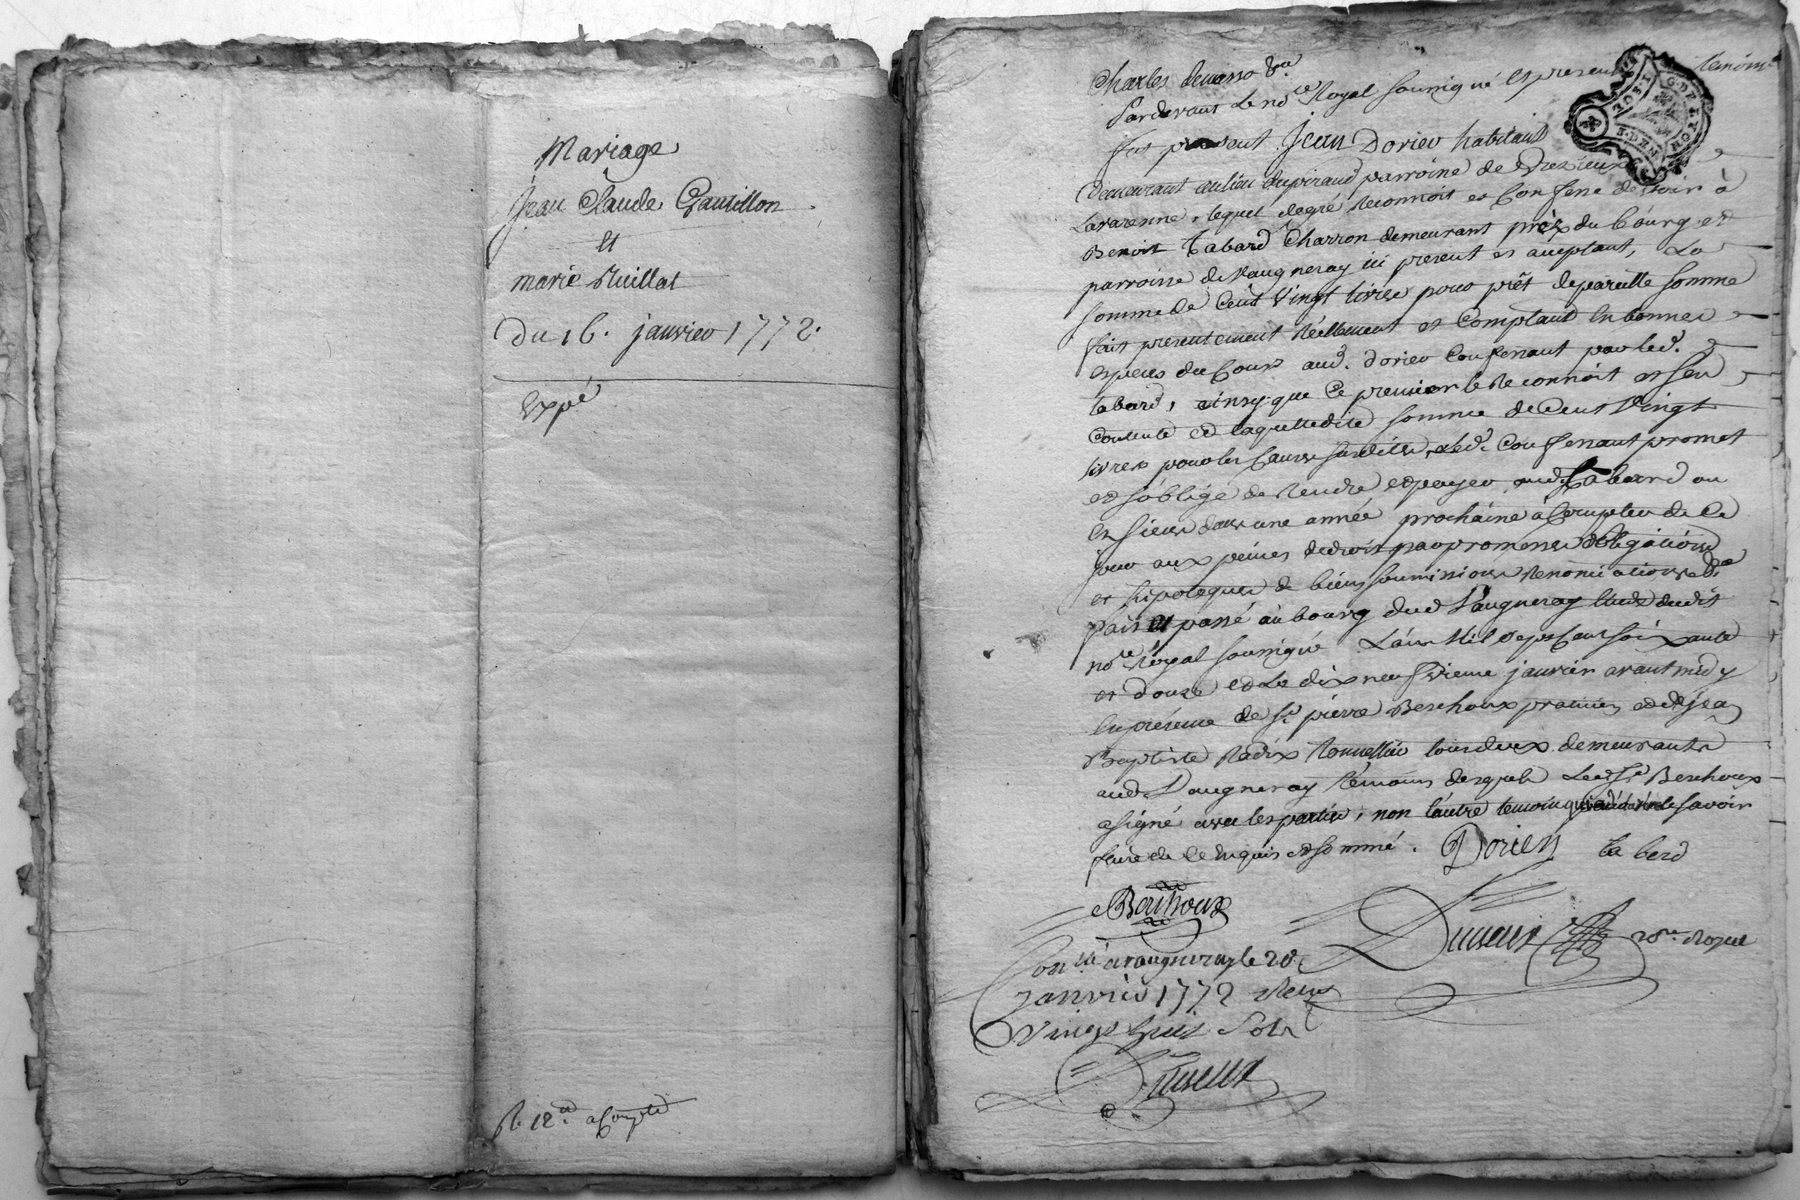 Mariage
Jean Claude Gautillon
et
marie Ruillat
du 16. janvier 1772.
Expé
R 12# a Compte
Charles
Pardevant Le no.re Royal soussigné et presents temoins
fut present Jean Dorier habitant
demeurant au lieu dupiraud parroine de
Lavarenne, lequel degré Reconnoit et Confesse devoir à
Benoit Tabard Charron demeurant prèx du bourg et
parroisse de Vaugneray ici present et acceptant, La
somme de Cent Vingt livres pour prêt de pareille somme
fait presentement Réellement et Comptant En bonnes
especes du Cours aud. dorier Confessant par led.
tabard, ainsy que Ce premier le Reconnoit et sen
Contente et laquelle dite somme de Cent Vingt
livres pour les Causes susdites, Led. Confessant promet
et s'oblige de Rendre et payer aud. Tabard ou
Es siens dans une année prochaine à Compter de Ce
jour aux peines de droit par promesses obligations
et hipoteques de biens soumissions Renonciations &a
fait et passé au bourg dud Vaugneray Etude dudit
no.re Royal soussigné L'an Mil sept Cent soixante
et douze et Le dix neufvieme janvier avant midy
En présence de Sr. pierre Berchoux praticien et de jean
Baptiste Radix tous deux demeurants
aud. Vaugneray temoins desquels Led. Sr. Berchoux
a signé avec les parties, non l'autre temoin qui a déclaré ne le savoir
faire de ce Enquis et sommé. Dorier tabard
Berchoux
no.re Royal
Con.lé à vaugneray le 28
Janvier 1772 Reçu
Vingt huit Sols